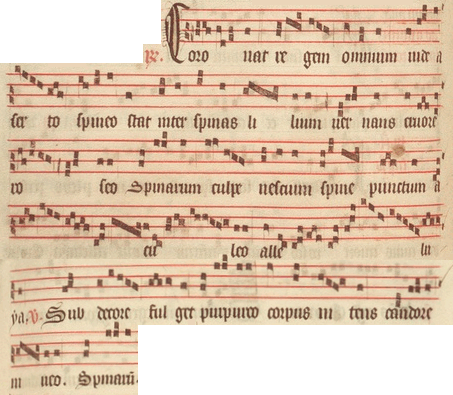 ℟. Coro nat re gem omnium iude a
ser to spineo stat inter spinas li lium ver nans cruore
ro seo Spinarum culpe nescium spine punctum a
cu leo alle lu
ya. ℣. Sub decore ful get purpureo corpus in tens candore
ni ueo. Spinarū.